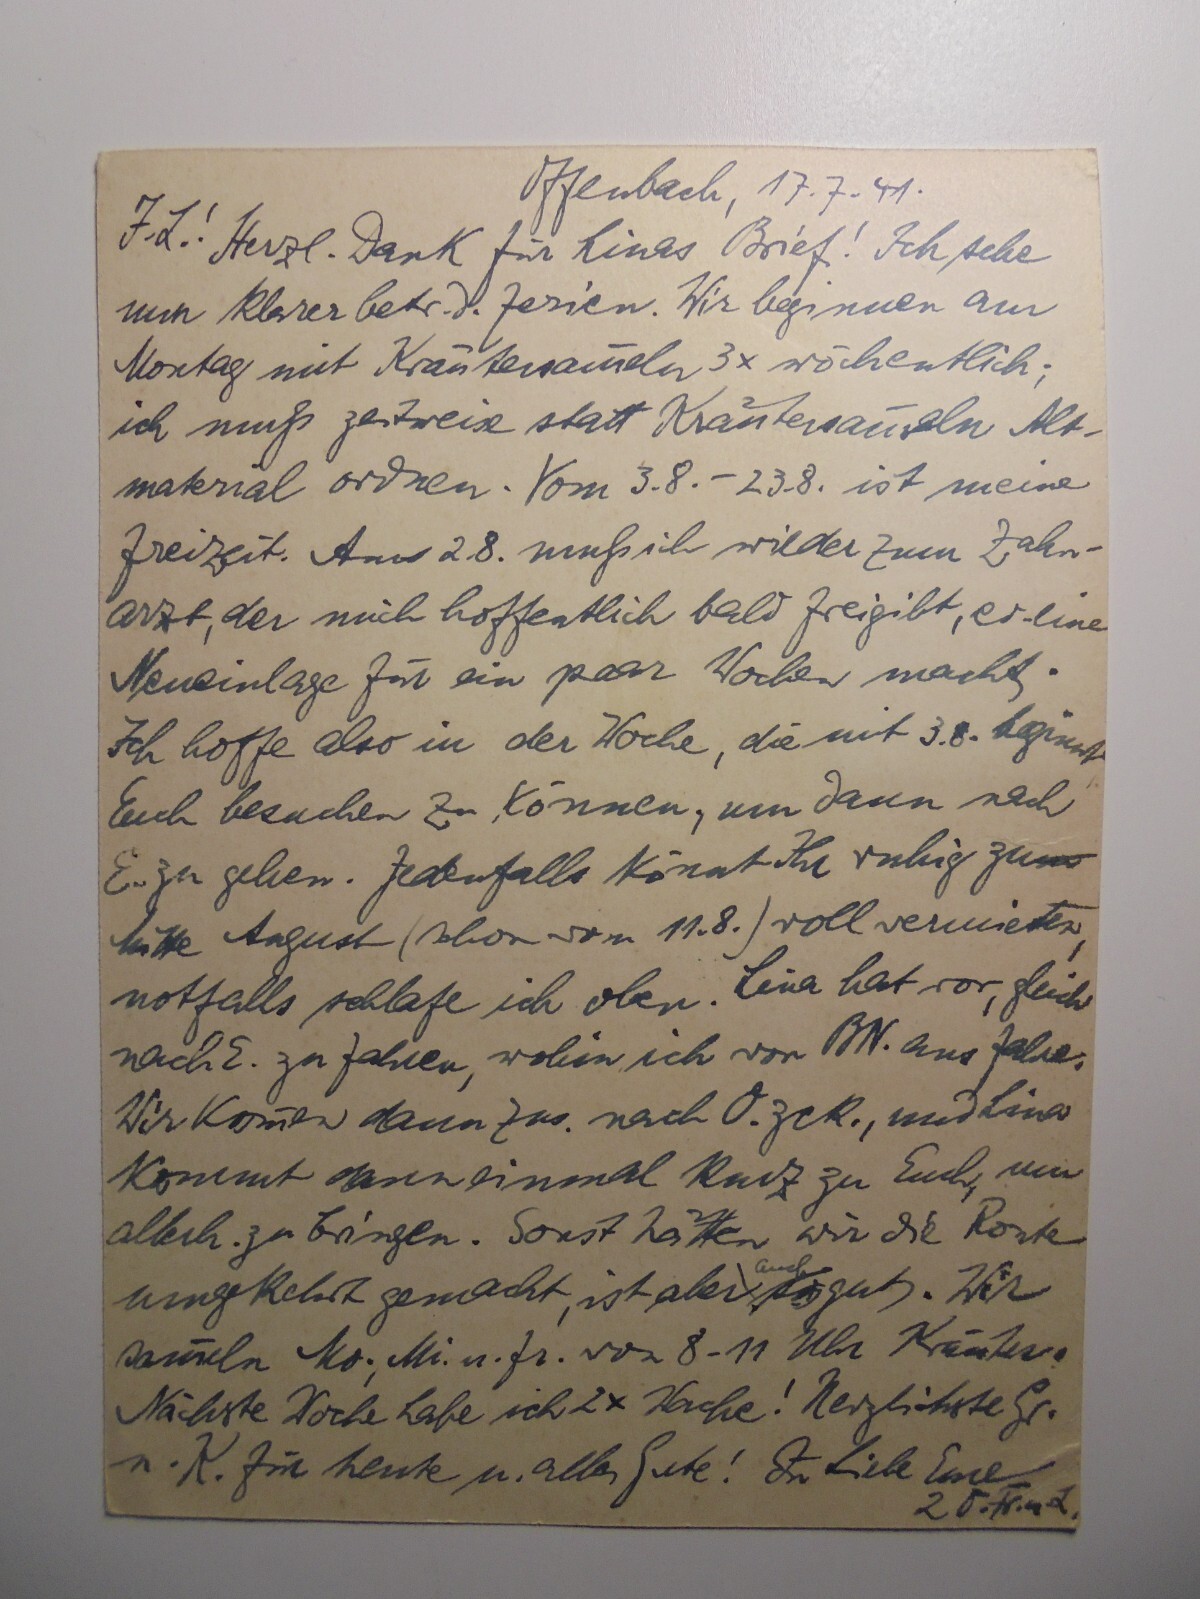 Offenbach, 17.7.41.
I.L.! Herzl. Dank für Linas Brief! Ich sehe
nun klarer betr. d. Ferien. Wir beginnen am
Montag mit Kräutersam̅eln 3x wöchentlich;
ich muß zeitweise statt Kräutersam̅eln Alt-
material ordnen. Vom 3.8. – 23.8. ist meine
Freizeit. Am 28. muß ich wieder zum Zahn-
arzt, der mich hoffentlich bald freigibt, eine
Neueinlage für ein paar Wochen macht.
Ich hoffe also in der Woche, die mit 3.8. beginnt
Euch besuchen zu können, um dann nach
E. zu gehen. Jedenfalls könnt Ihr ruhig
Mitte August (schon vom 11.8.) voll vermieten,
notfalls schlafe ich oben. Lina hat vor, gleich
nach E. zu fahren, wohin ich von BN. aus fahre.
Wir kom̅en dann zus. nach O. zck., und Lina
kommt dann einmal kurz zu Euch, um
allerh. zu bringen. Sonst hätten wir die Route
umgekehrt gemacht, ist aber auch gut. Wir
sam̅eln Mo., Mi. u. Fr. von 8-11 Uhr Kräuter.
Nächste Woche habe ich 2x Wache! Herzlichste Gr.
u. K. für heute u. alles Gute! In Liebe Eure
2 O. Fr. u. L.